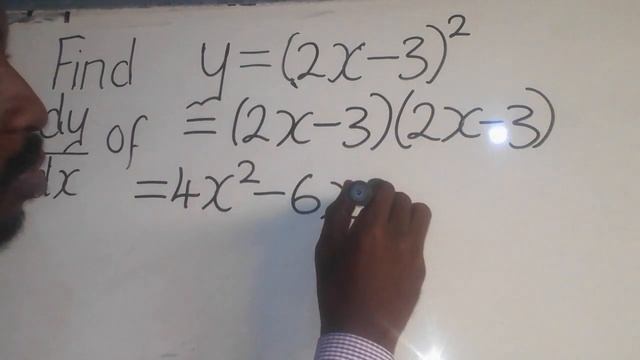 Find y=(2x-3)²
dy/dx of =(2x-3)(2x-3)
=4x²-6x